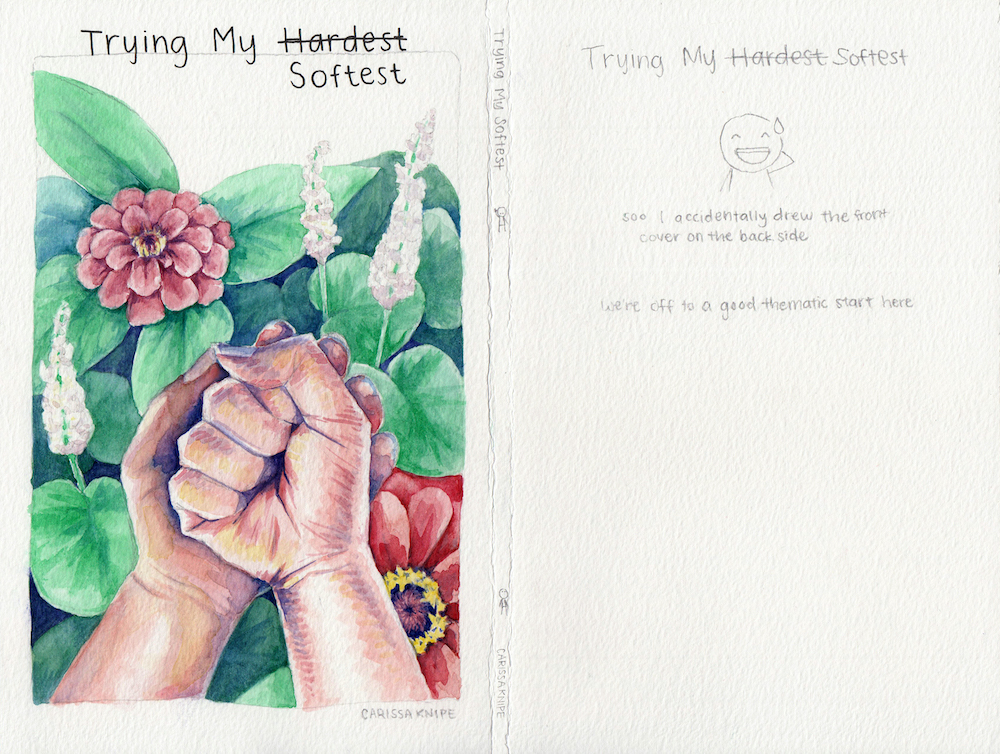 Trying My ~~Hardest~~
Softest
CARISSA KNIPE
Trying My Softest
CARISSA KNIPE
Trying My ~~Hardest~~ Softest
soo I accidentally drew the front
cover on the back side
we're off to a good thematic start here